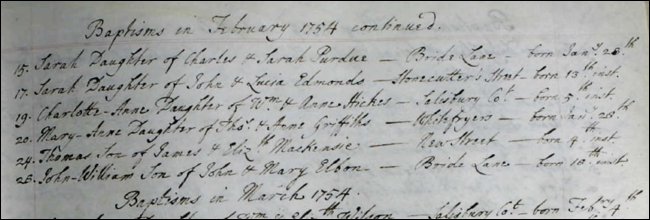 Baptisms in February 1754 continued.
15. Sarah Daughter of Charles & Sarah Purdue — Bride Lane — born Jany. 28th
17. Sarah Daughter of John & Lucia Edmonds — Stonecutter's Street — born 13th inst.
19. Charlotte-Anne Daughter of Wm. & Anne Hickes — Salisbury Cot. — born 5th inst.
20. Mary-Anne Daughter of Thos. & Anne Griffiths — Whitefryers — born Jany. 28th
24. Thomas Son of James & Elizth. Mackensie — Street — born 4th inst
25. John-William Son of John & Mary Elbon — Bride Lane — born 10th inst.
Baptisms in March 1754.
Wilson — Salisbury Cot. — born Febry. 4th